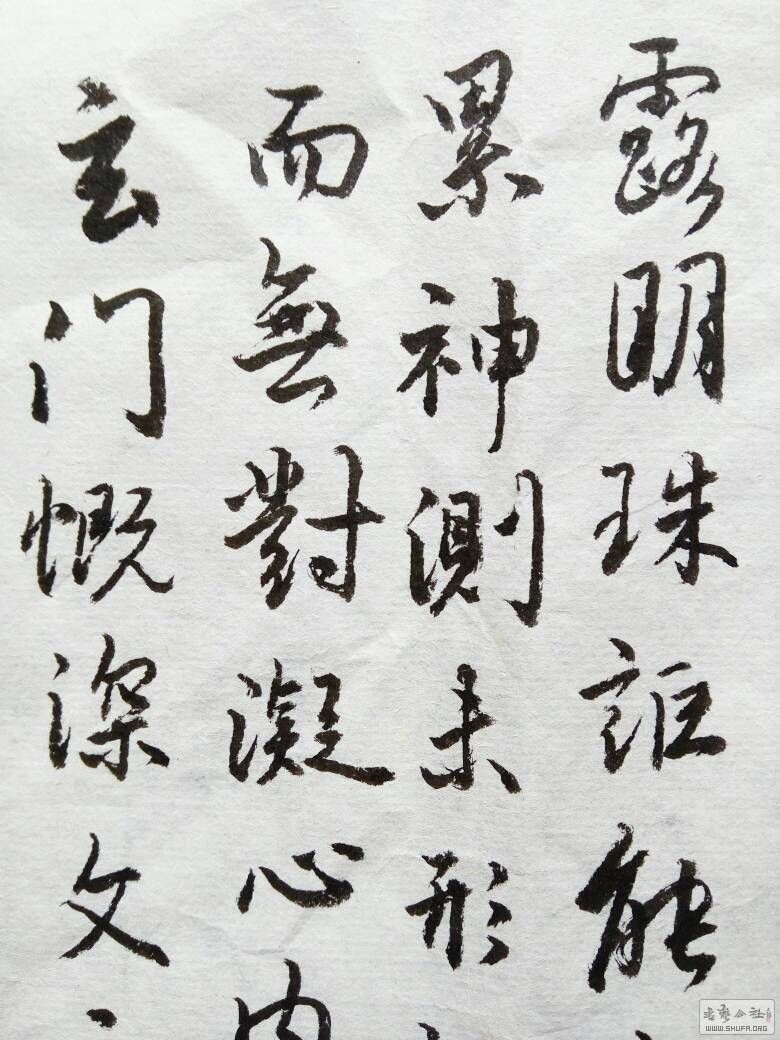 露明珠詎能
累神測未形
而無對凝心内
玄门慨深文
书艺公社
WWW.SHUFA.ORG